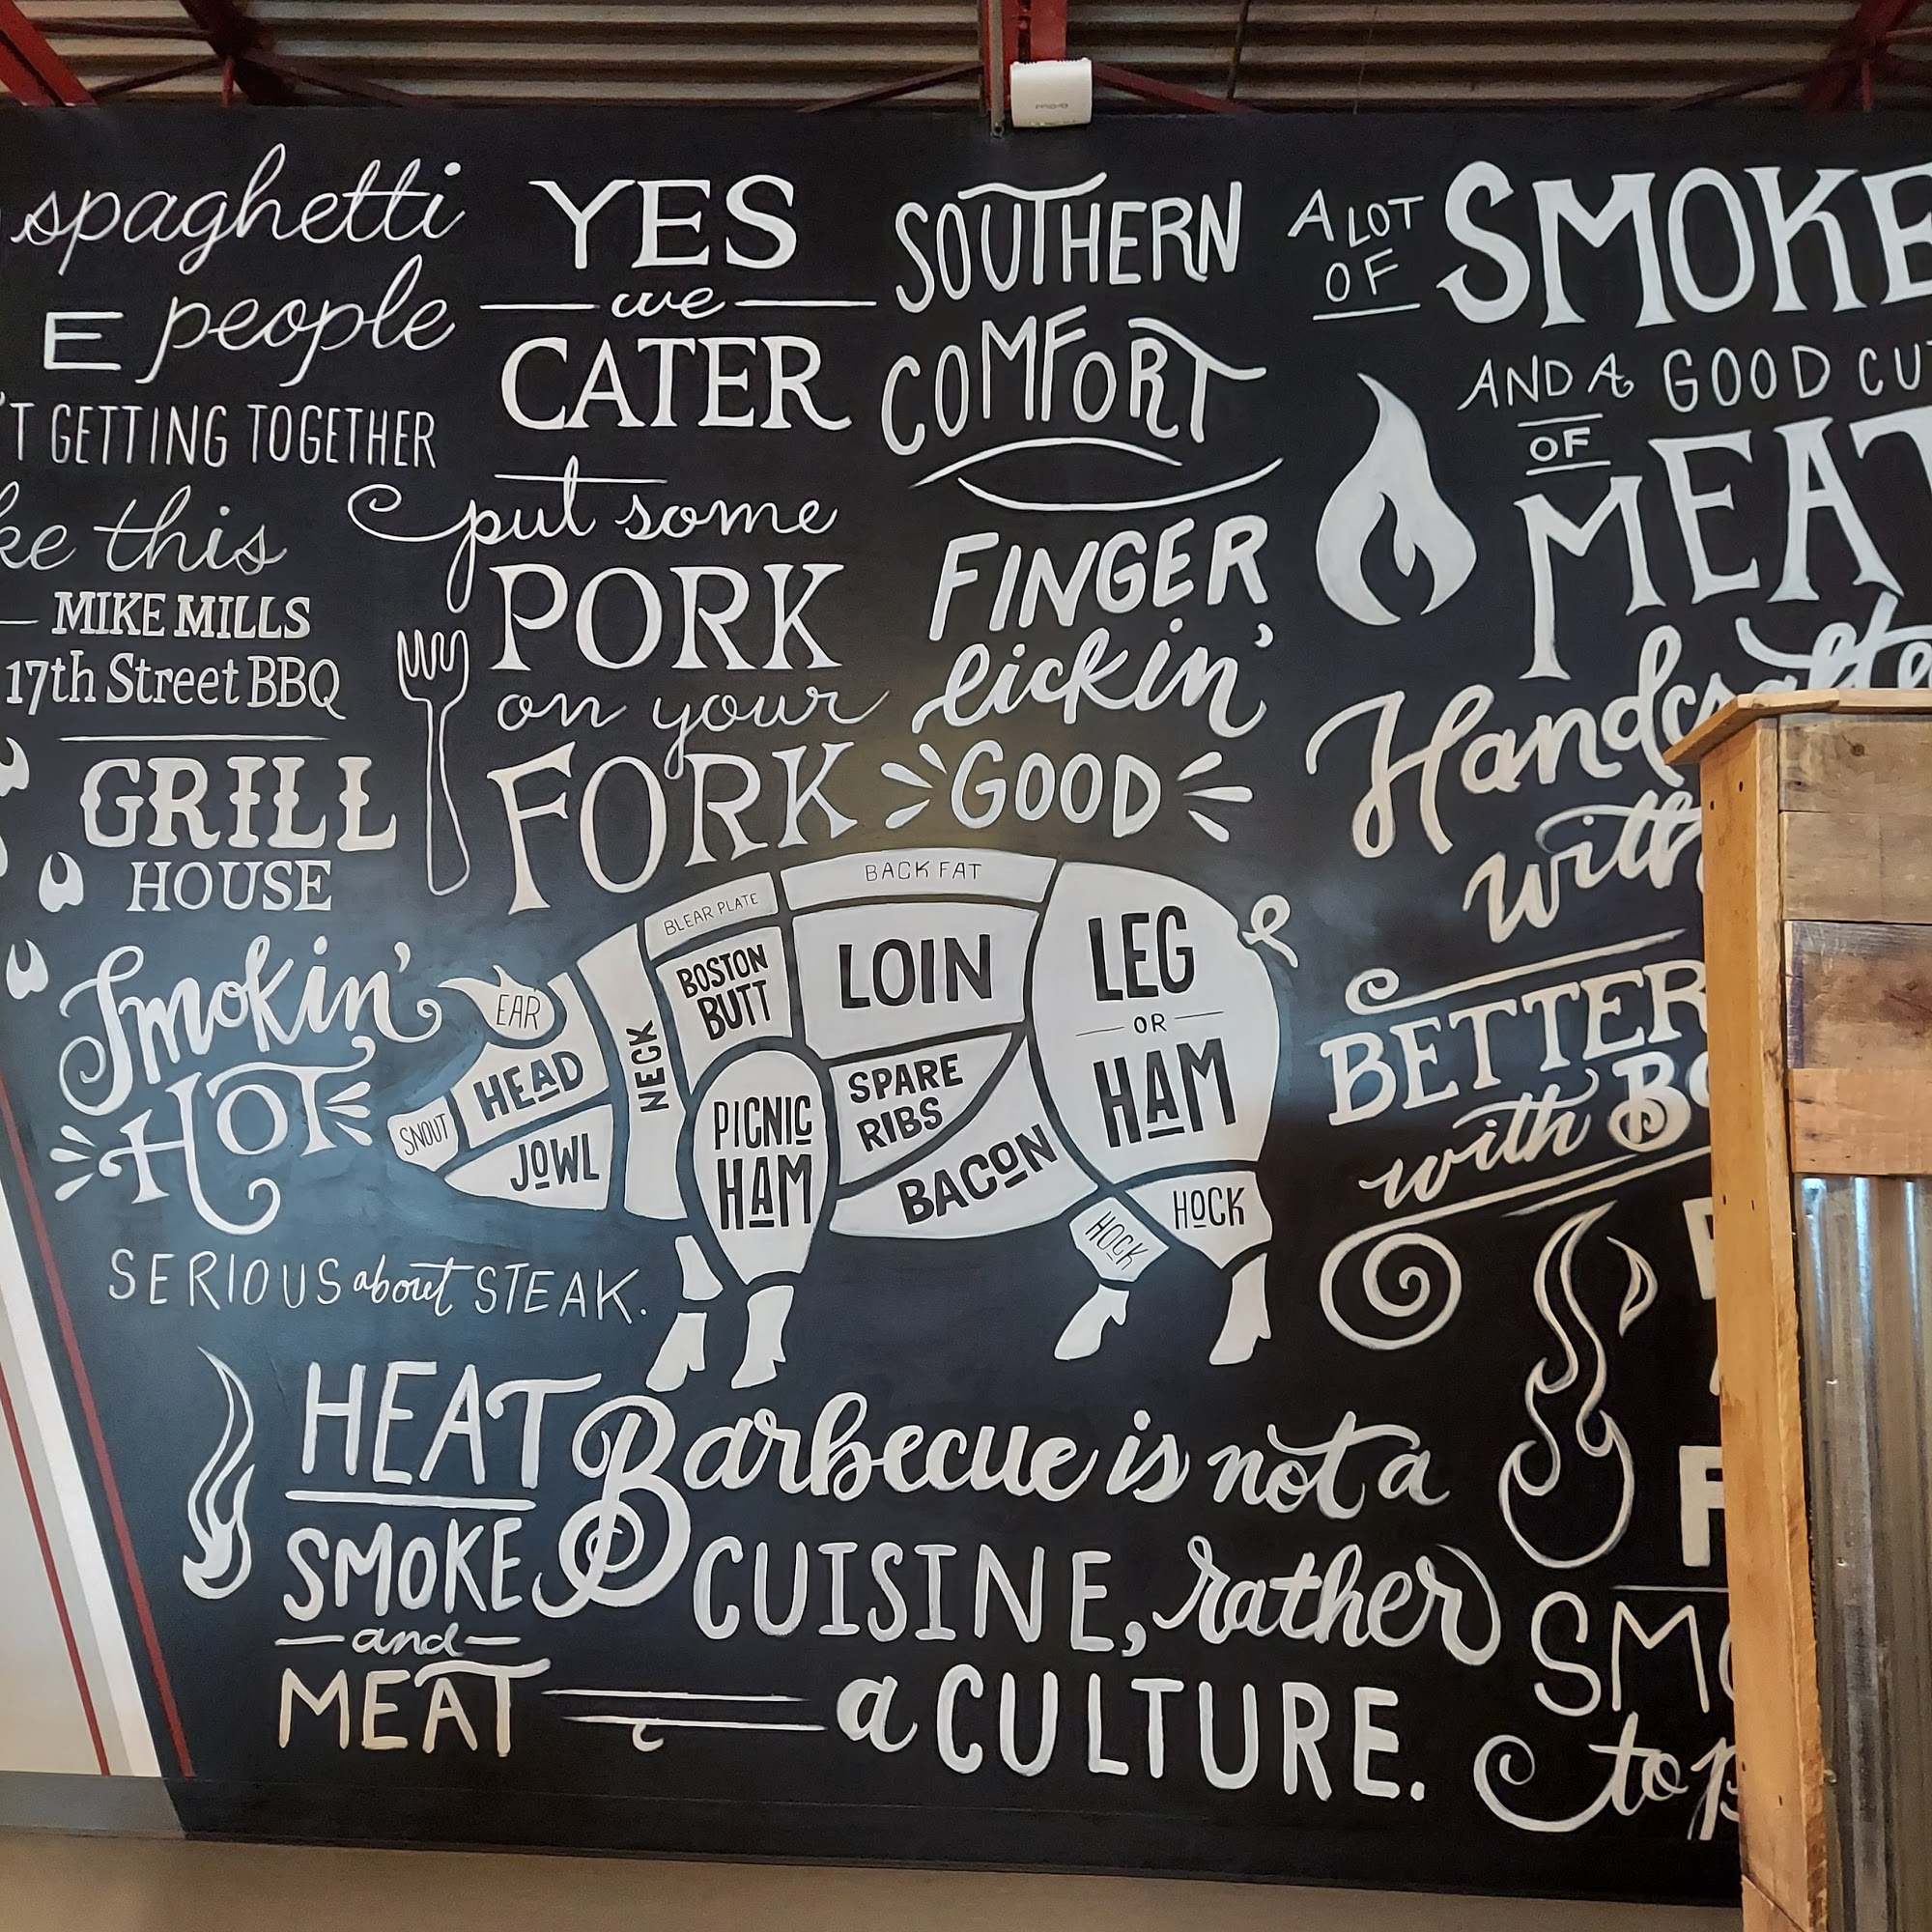 spaghetti
E people
'T GETTING TOGETHER
ke this
MIKE MILLS
17th Street BBQ
GRILL
HOUSE
Smokin'
HOT
SERIOUS about STEAK.
HEAT
SMOKE
and
MEAT
YES
we
CATER
put some
PORK
on your
FORK
SOUTHERN
COMFORT
FINGER
lickin'
GOOD
BACK FAT
BLEAR PLATE
BOSTON
BUTT
LOIN
LEG
OR
HAM
EAR
HEAD
NECK
SNOUT
JOWL
PICNIC
HAM
SPARE
RIBS
BACON
HOCK
HOCK
Barbecue is not a
CUISINE, rather
a CULTURE.
A LOT
OF
SMOKE
AND A GOOD CUT
OF
MEAT
Handcrafte
with
BETTER
with BO
SMO
to p